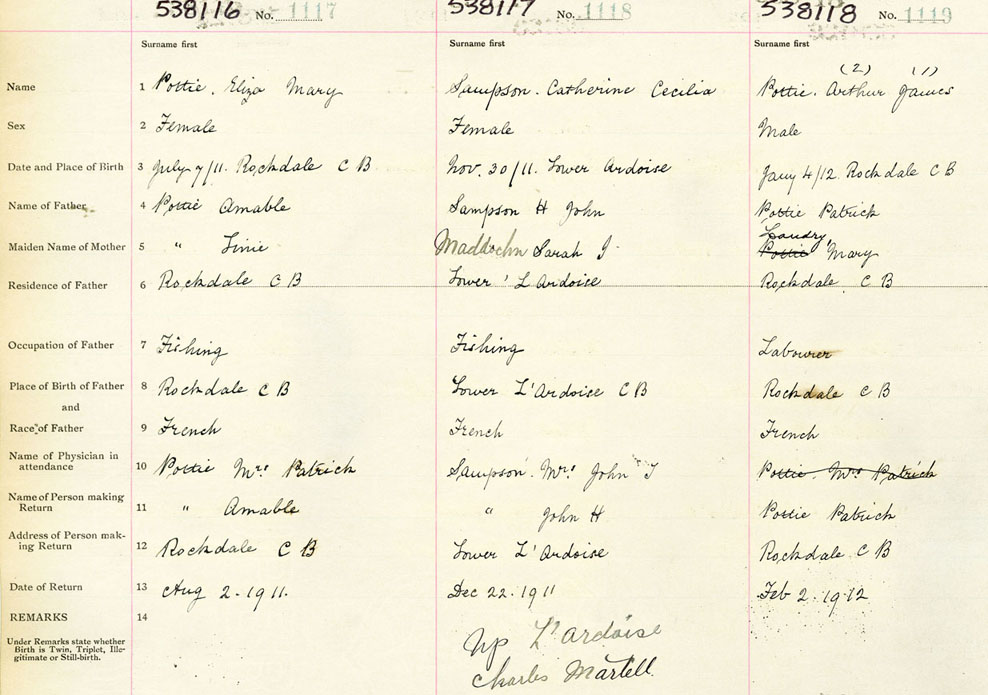 538116 No. 1117 538117 No. 1118 538118 No. 1119
Surname first Surname first Surname first
(2) (1)
Name 1 Pottie. Eliza Mary Sampson. Catherine Cecilia Pottie. Arthur James
Sex 2 Female Female Male
Date and Place of Birth 3 July 7/11. Rockdale C B Nov. 30/11. Lower Ardoise Jany 4/12. Rockdale C B
Name of Father 4 Pottie Amable Sampson H John Pottie Patrick
Landry
Maiden Name of Mother 5 " Sarah J Pottie Mary
Residence of Father 6 Rockdale C B Lower L'Ardoise Rockdale C B
Occupation of Father 7 Fishing Fishing Labourer
Place of Birth of Father 8 Rockdale C B Lower L'Ardoise C B Rockdale C B
and
Race of Father 9 French French French
Name of Physician in
attendance 10 Pottie Mrs Patrick Sampson. Mrs John J Pottie. Mrs Patrick
Name of Person making
Return 11 " Amable " John H Pottie Patrick
Address of Person mak-
ing Return 12 Rockdale C B Lower L'Ardoise Rockdale C B
Date of Return 13 Aug 2. 1911. Dec 22. 1911 Feb 2. 1912
REMARKS 14
Under Remarks state whether
Birth is Twin, Triplet, Ille-
gitimate or Still-birth.
Up L'Ardoise
Charles Martell.